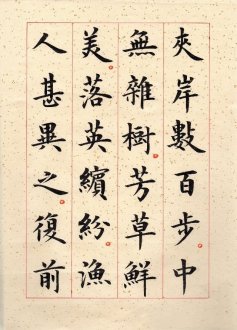 夾岸數百步中
無雜樹芳草鮮
美落英繽紛漁
人甚異之復前